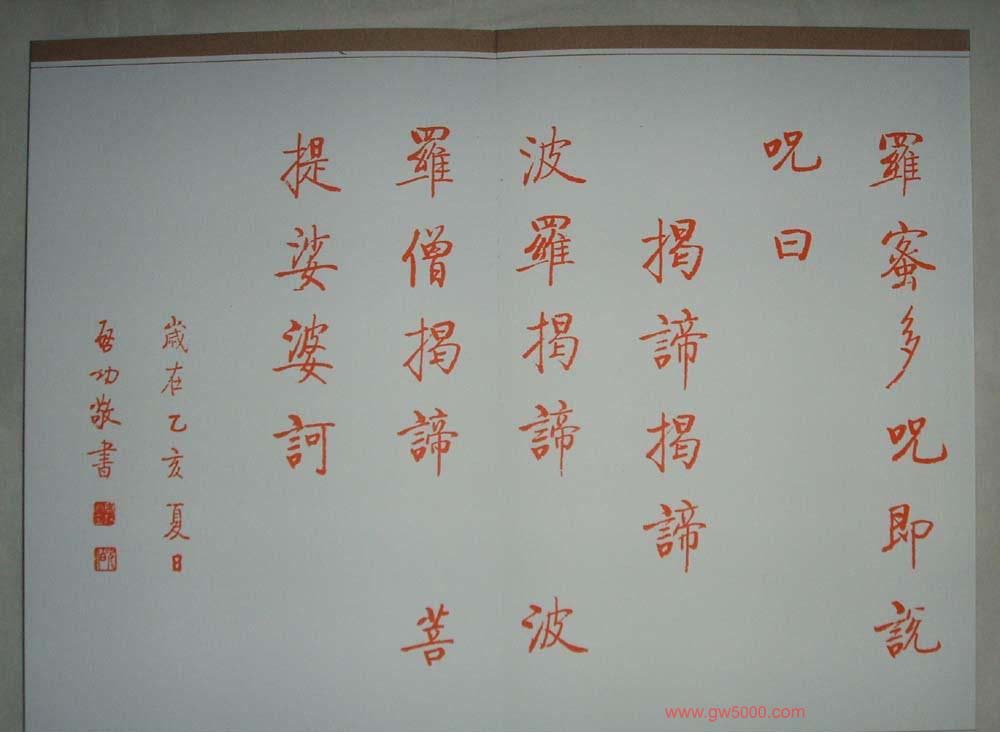 羅蜜多呪即說
呪曰
揭諦揭諦
波羅揭諦 波
羅僧揭諦 菩
提娑婆訶
歲在乙亥夏日
啓功敬書
www.gw5000.com